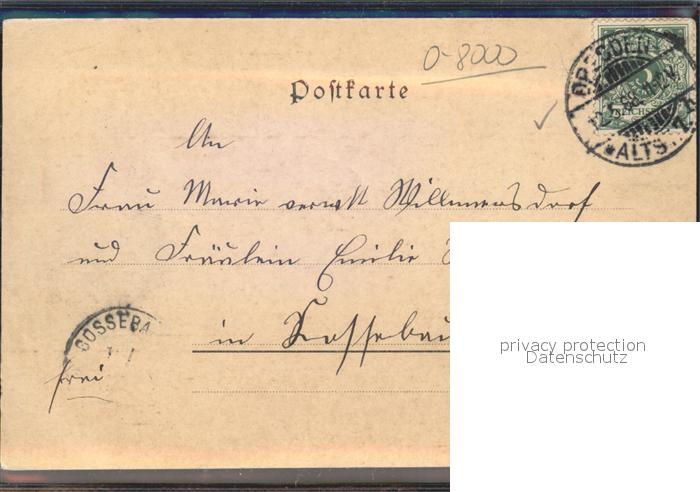 0-8000
Postkarte
DRESDEN
ALTST.
REICHSPOST
An
Frau Marie verw. Willmersdorf
und Fräulein Emilie
in Kossebau
GOSSEBA
frei
privacy protection
Datenschutz